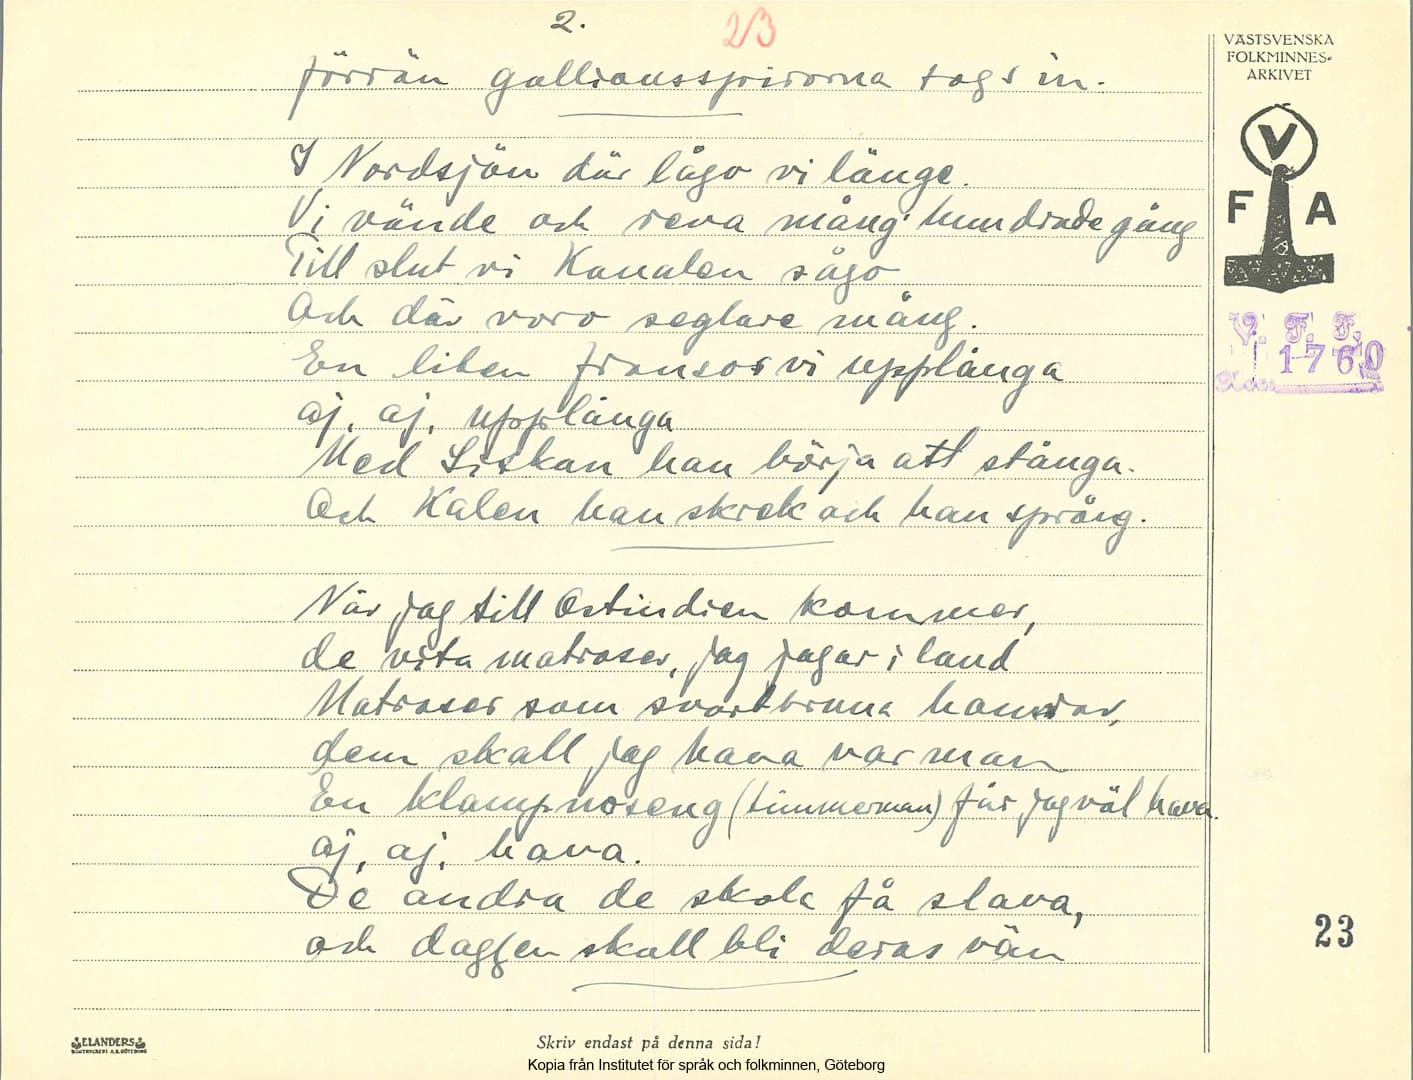 2.
23
förrän gallionsspirorna togs in.
I Nordsjön där lågo vi länge.
Vi vände och reva mång' hundrade gång
Till slut vi Kanalen sågo
Och där voro seglare mång.
En liten fransos vi upplånga
aj, aj, upplånga
Med Siskan han börja att stånga.
Och Kalen han skrek och han språng.
När jag till Ostindien kommer,
de vita matroser, jag jagar i land
Matroser som svartbruna hamrar,
dem skall jag hava var man
En klampnoseng (timmerman) får jag väl hava.
aj, aj, hava.
De andra de skola få slava,
och daggen skall bli deras vän
VÄSTSVENSKA
FOLKMINNES-
ARKIVET
V
F A
V. F. F.
1760
23
ELANDERS
BOKTRYCKERI A.B. GÖTEBORG
Skriv endast på denna sida!
Kopia från Institutet för språk och folkminnen, Göteborg